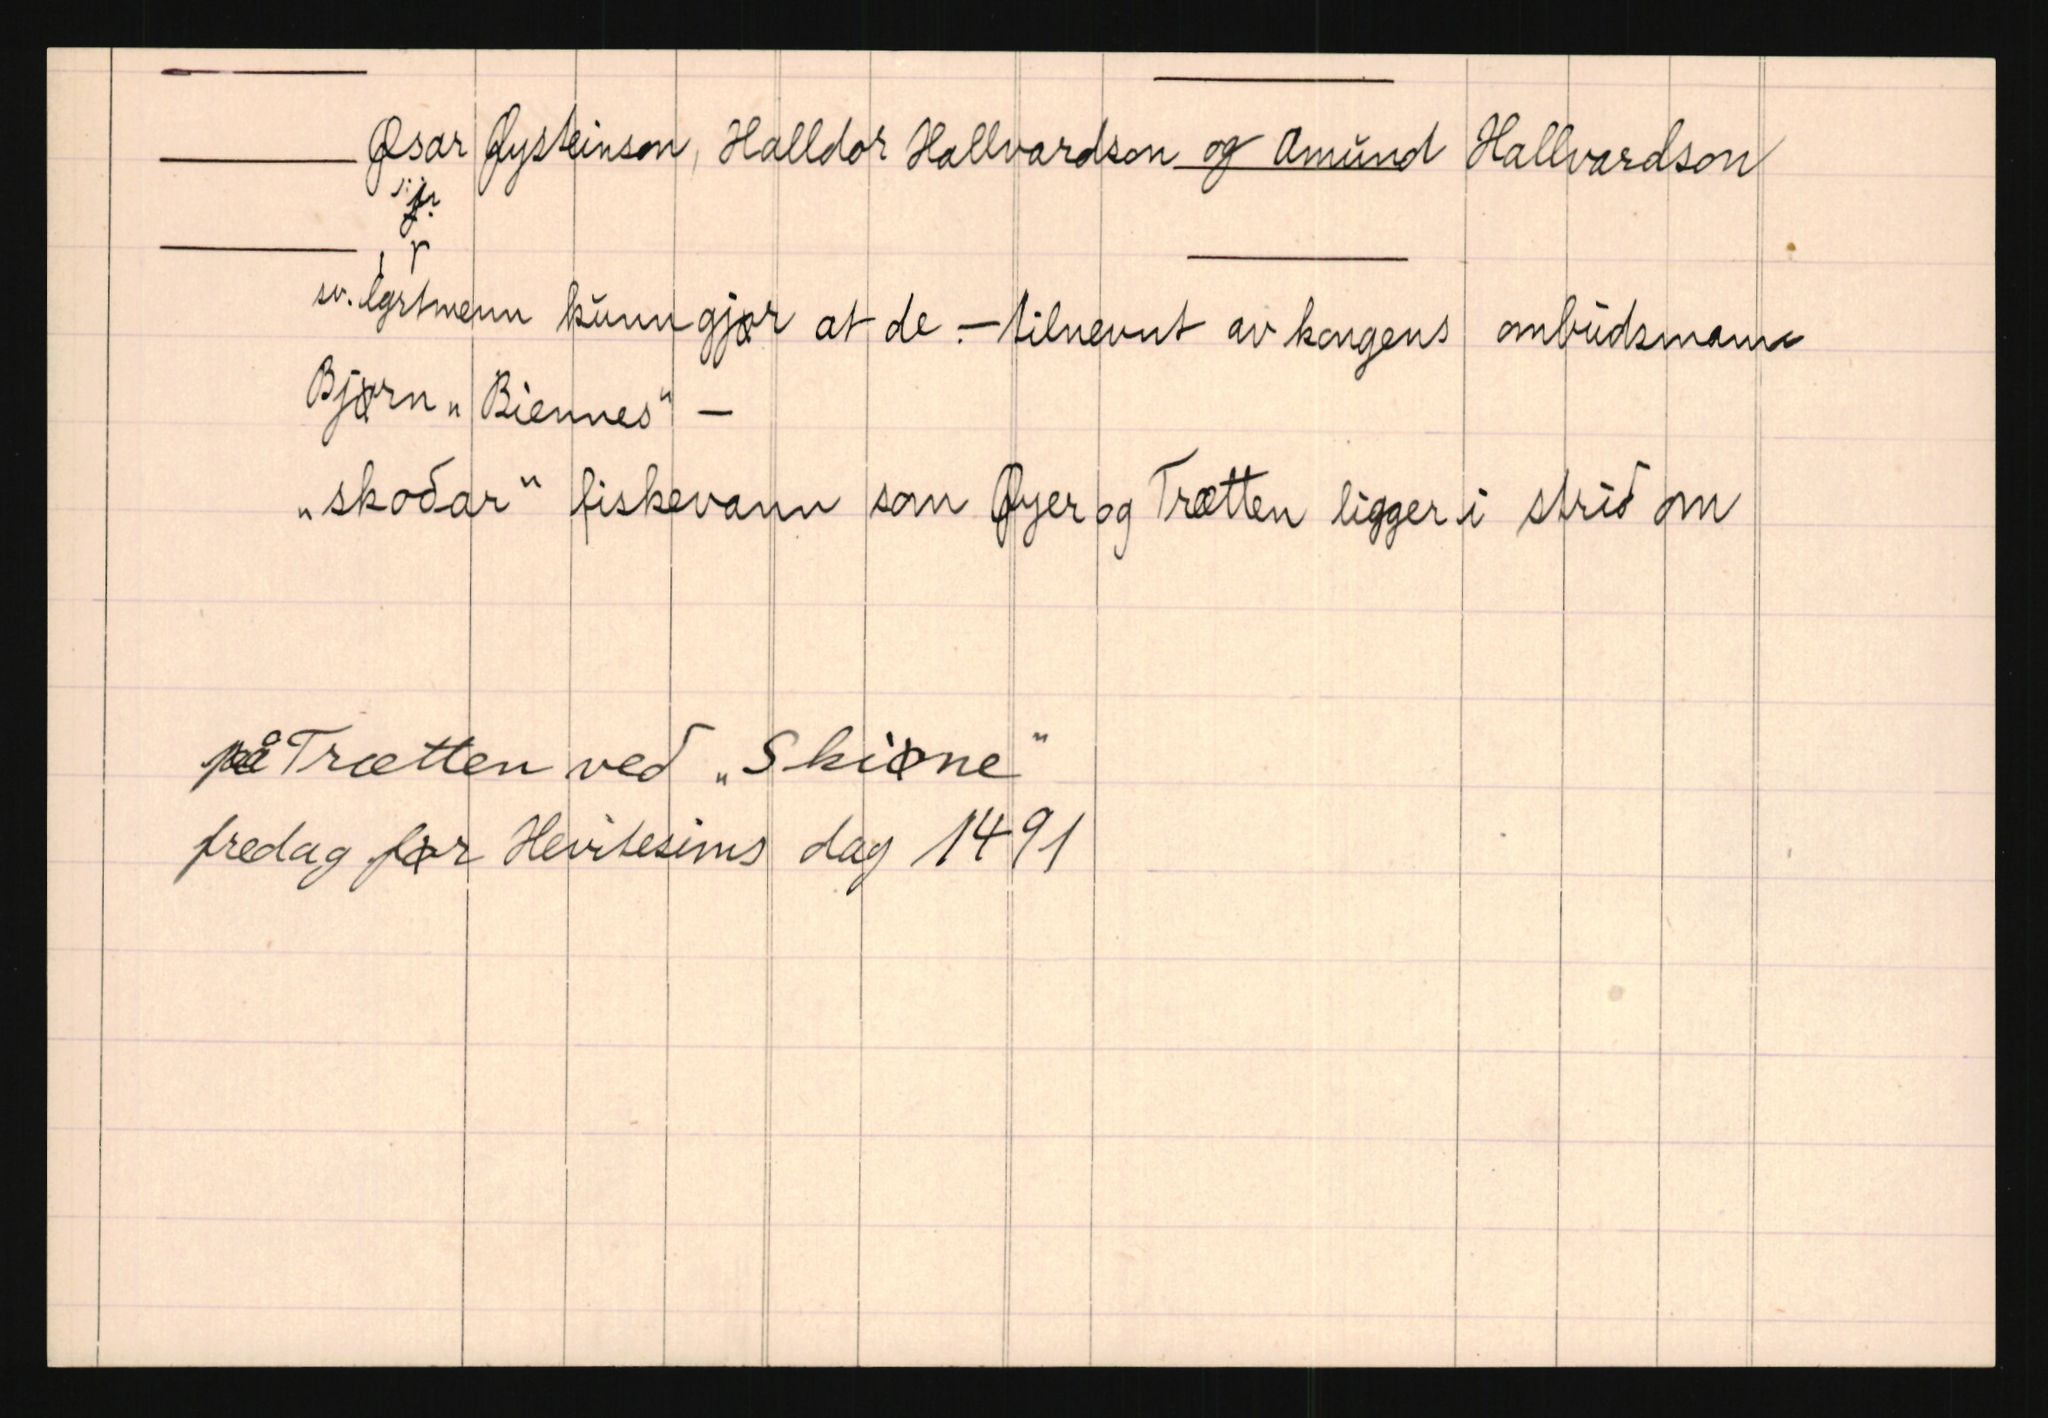 Øsar Øysteinson, Halldor Hallvardson og Amund Hallvardson
sv. lgrtmenn kunngjør at de - tilnevnt av kongens ombudsmann
Bjørn „Biennes“ -
„skoðar“ fiskevann som Øyer og Trætten ligger i strid om
på Trætten ved „Skiøne“
fredag før Hevitesims dag 1491